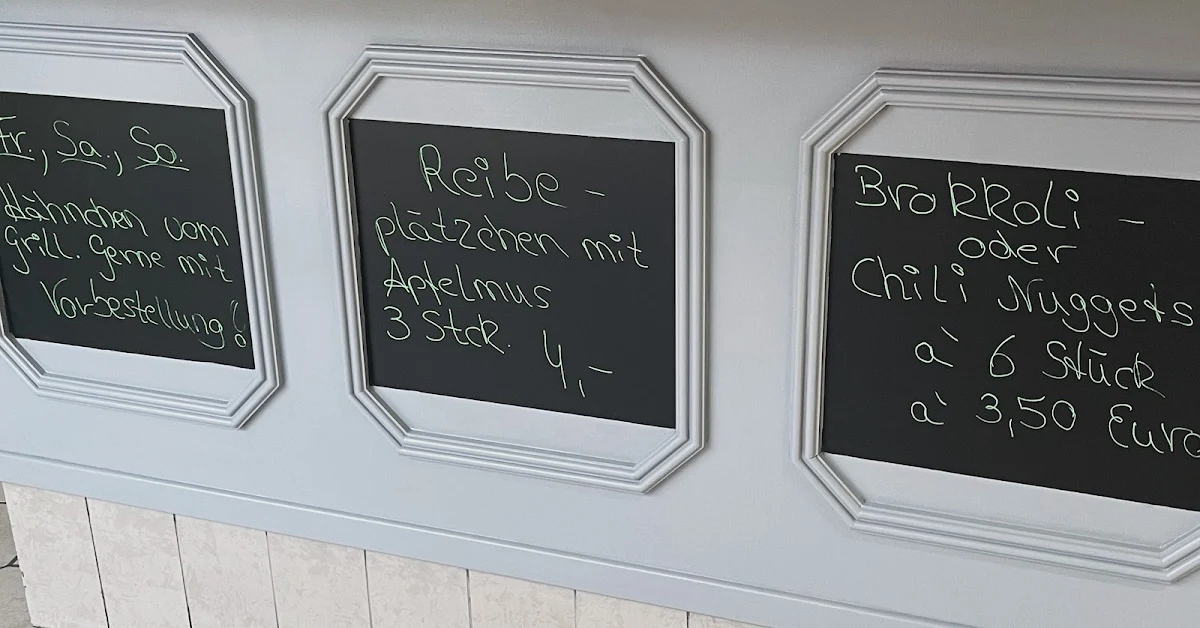 Fr., Sa., So.
Hähnchen vom
Grill. Gerne mit
Vorbestellung!
Reibe -
plätzchen mit
Apfelmus
3 Stck.
4,-
Brokkoli -
oder
Chili Nuggets
à 6 Stück
à 3,50 Euro